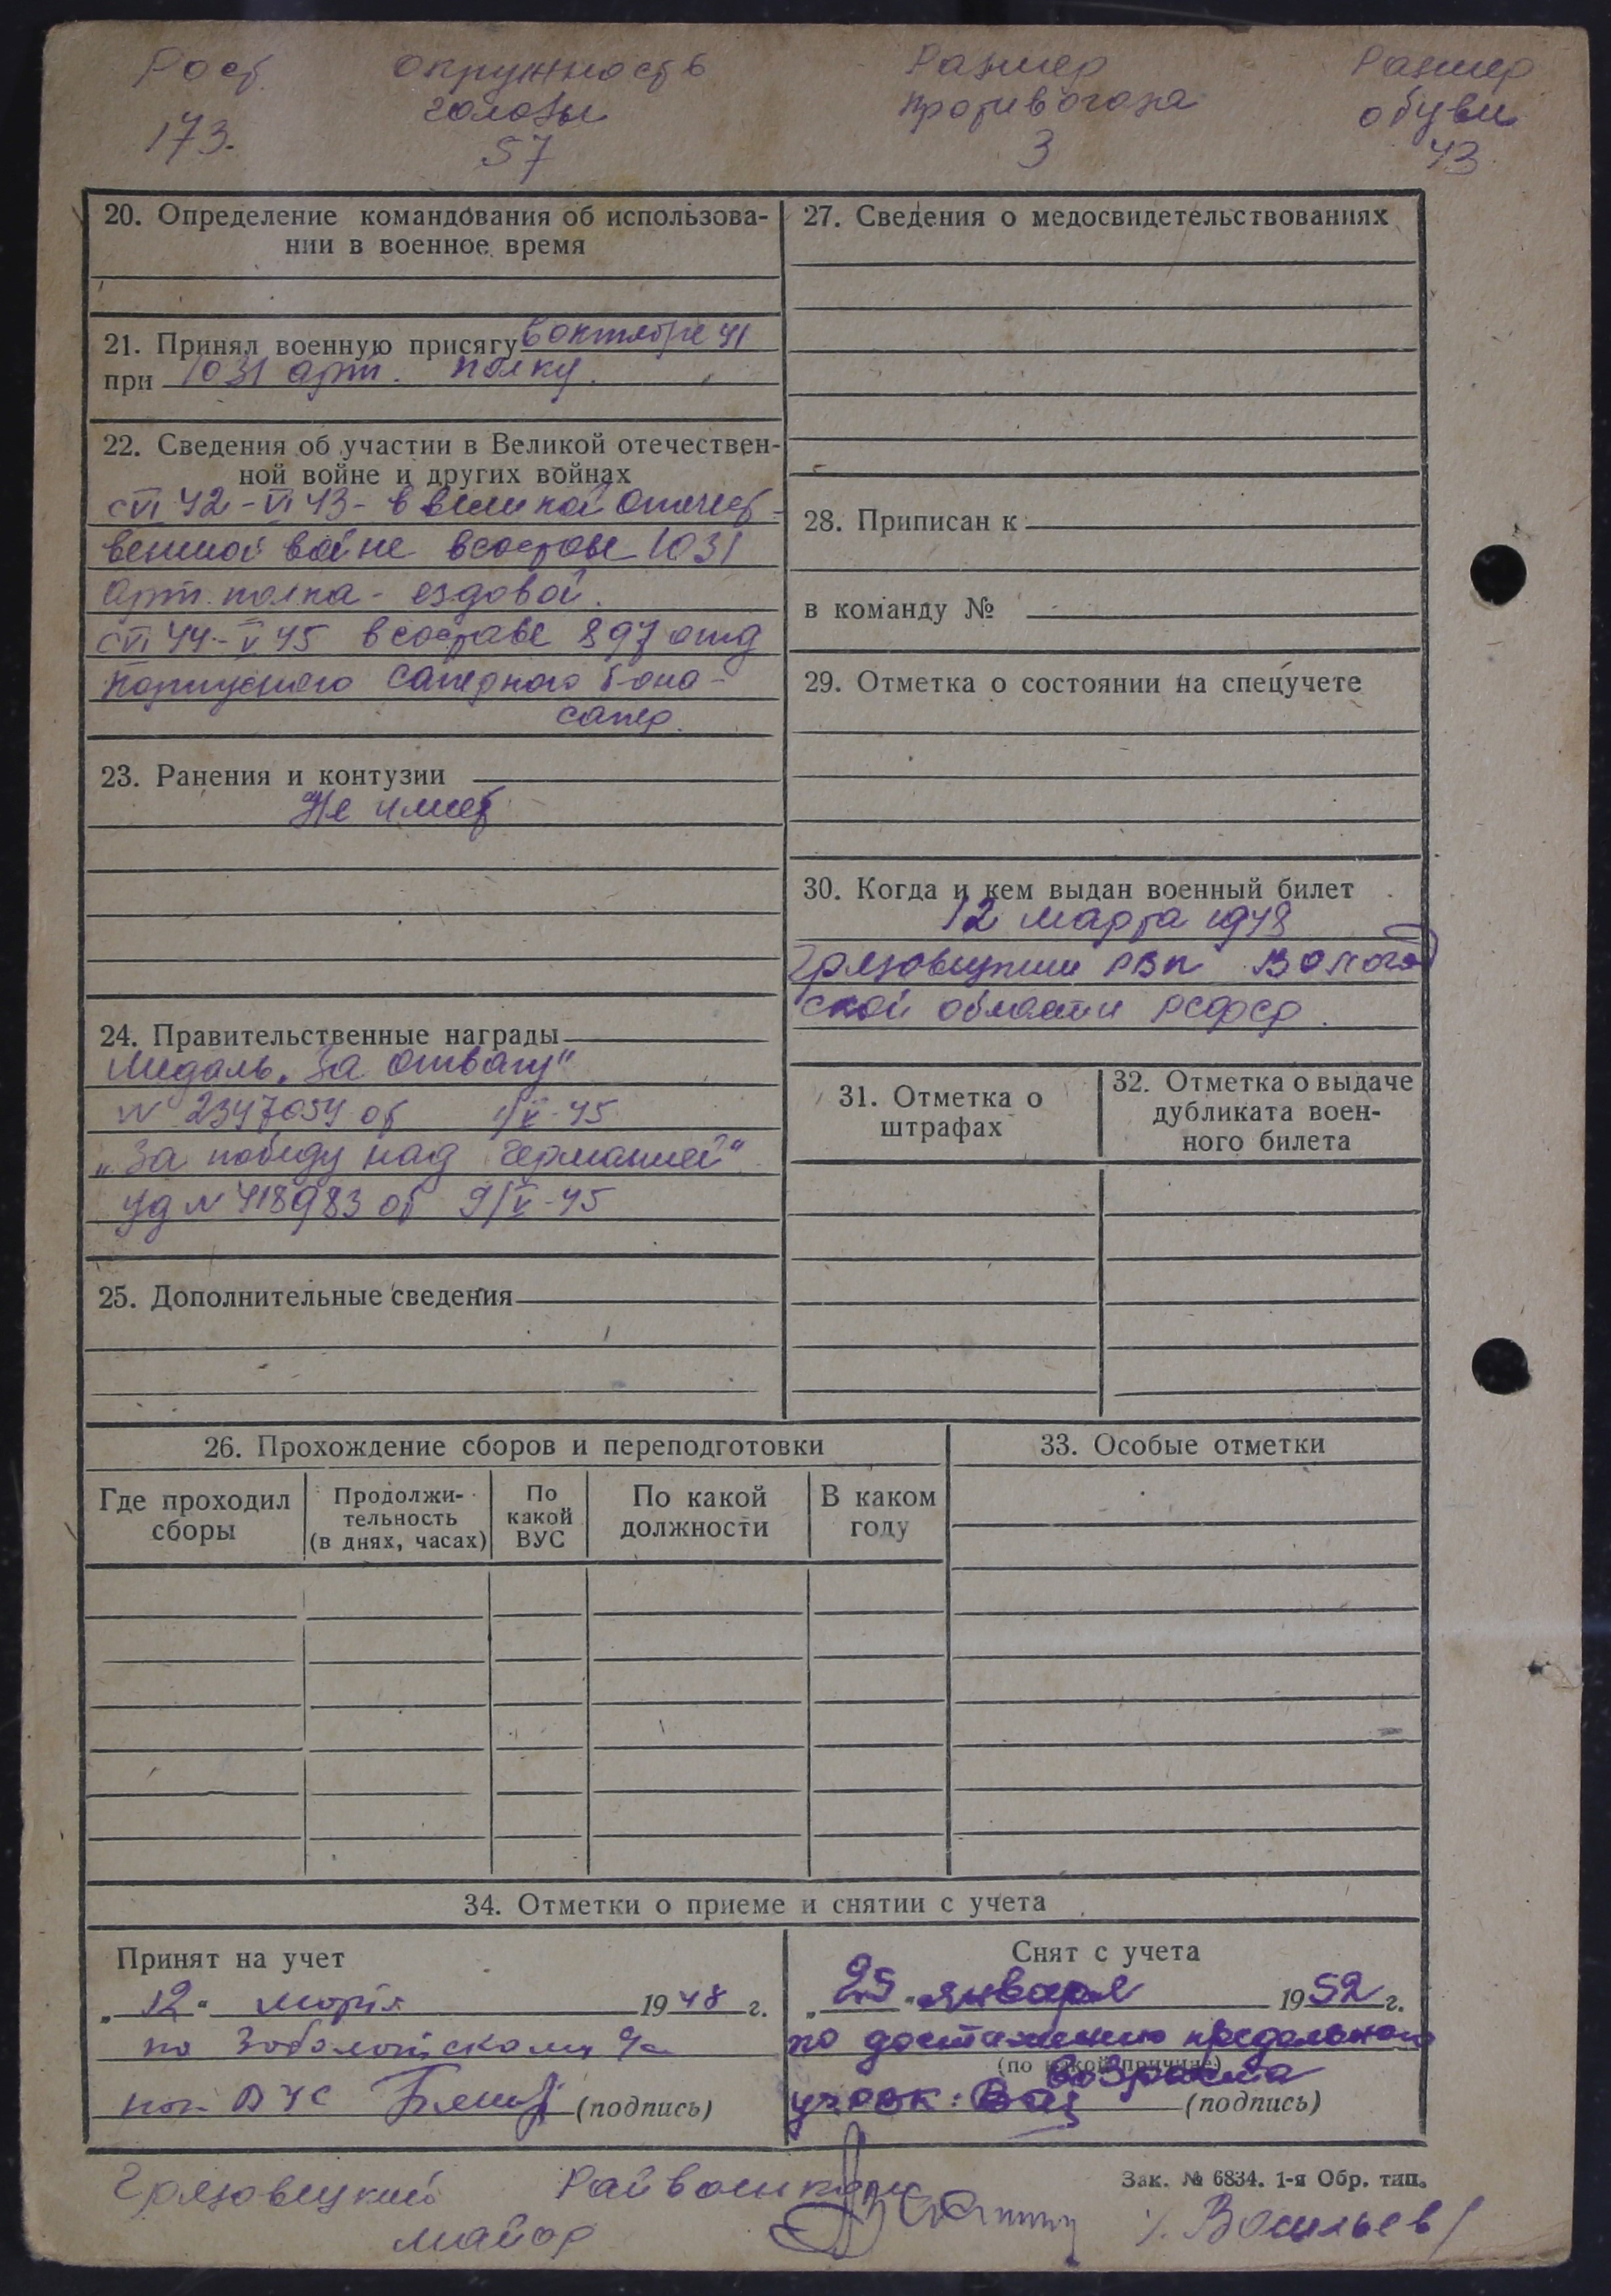 Рост окружность Размер Размер
головы противогаза обуви
173. 57 3 43
20. Определение командования об использова-
нии в военное время
21. Принял военную присягу в октябре 41
при 1031 арт. полку.
22. Сведения об участии в Великой отечествен-
ной войне и других войнах
с VI 42 - VI 43 - в великой отечест-
венной войне в составе 1031
арт. полка - ездовой.
с VI 44 - V 45 в составе 897 отд
корпусного саперного б-она -
сапер.
23. Ранения и контузии
Не имеет
24. Правительственные награды
Медаль „За отвагу"
N 2347054 от 1/V-45
„За победу над Германией"
уд N 418983 от 9/V-45
25. Дополнительные сведения
27. Сведения о медосвидетельствованиях
28. Приписан к
в команду №
29. Отметка о состоянии на спецучете
30. Когда и кем выдан военный билет
12 марта 1948
Грязовецким РВК Вологод
ской области РСФСР.
31. Отметка о
штрафах
32. Отметка о выдаче
дубликата воен-
ного билета
26. Прохождение сборов и переподготовки
Где проходил
сборы
Продолжи-
тельность
(в днях, часах)
По
какой
ВУС
По какой
должности
В каком
году
33. Особые отметки
34. Отметки о приеме и снятии с учета
Принят на учет
„12" марта 1948 г.
по
ВУС (подпись)
Снят с учета
„25" января 1952 г.
по достижению предельного
(по какой причине)
возраста
(подпись)
Зак. № 6834. 1-я Обр. тип.
Грязовецкий Райвоенком
майор /Васильев/